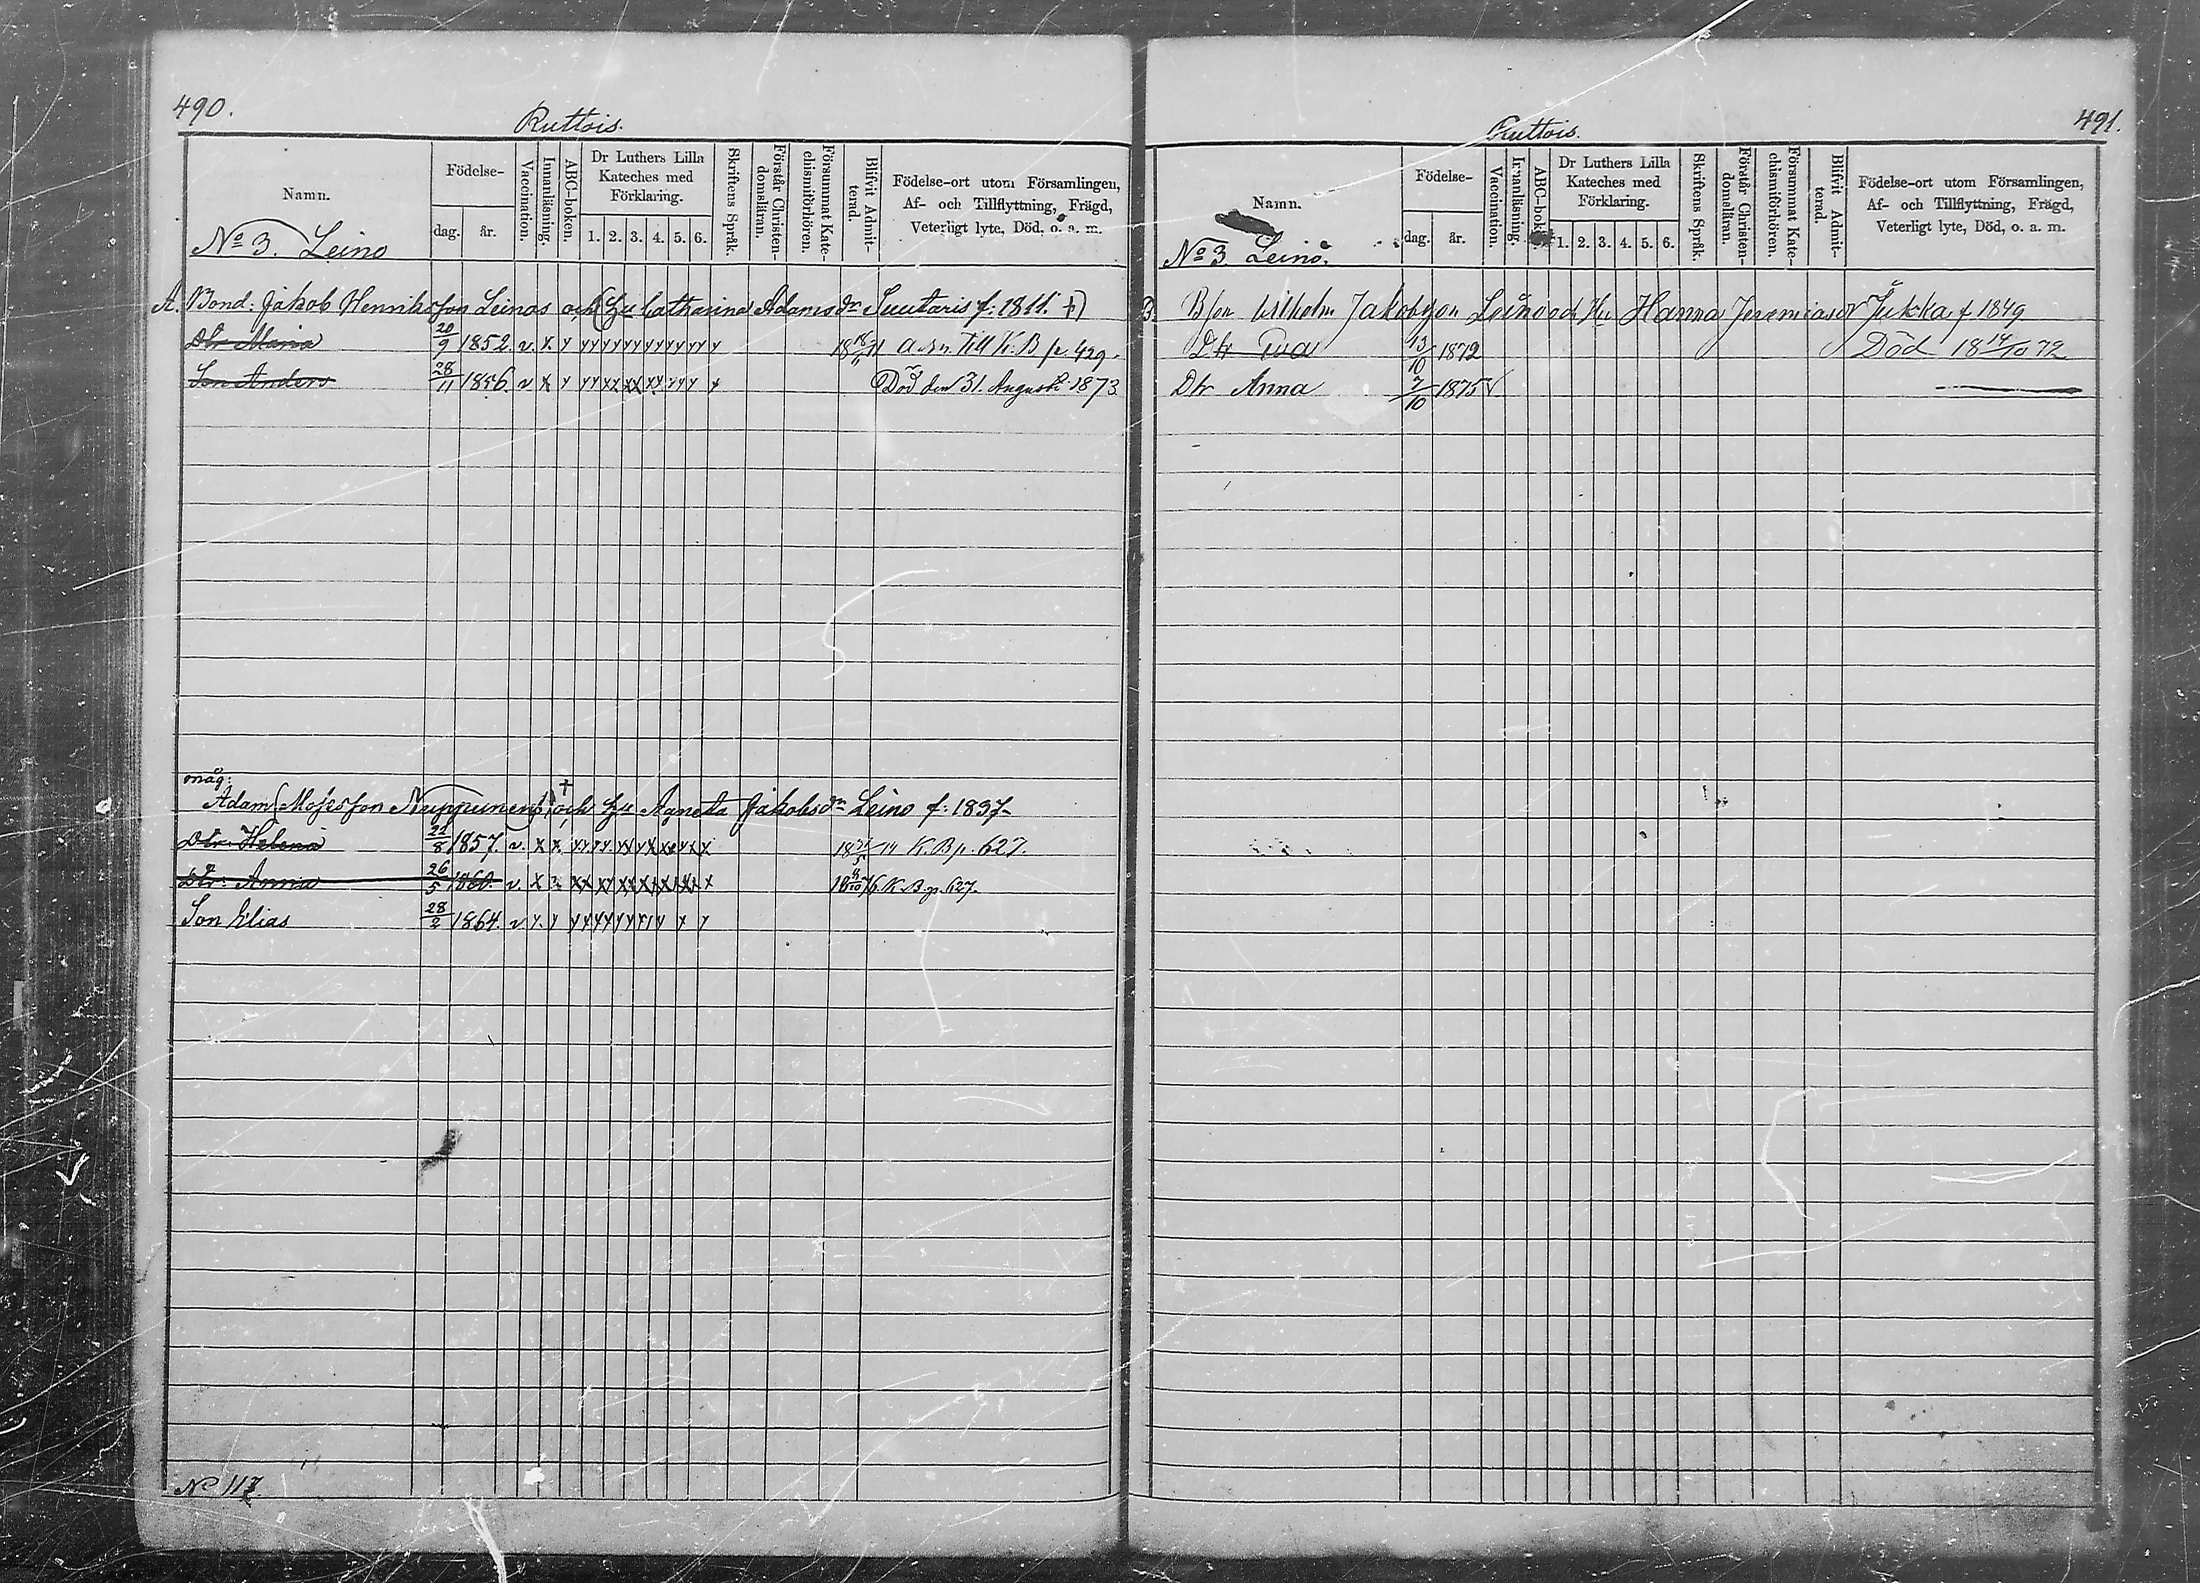 490.
Ruttois.
Namn.
Födelse-
dag. år.
Vaccination.
Innanläsning.
ABC-boken.
Dr Luthers Lilla
Kateches med
Förklaring.
1. 2. 3. 4. 5. 6.
Skriftens Språk.
Förstår Christen-
domsläran.
Försummat Kate-
chismiförhören.
Blifvit Admit-
terad.
Födelse-ort utom Församlingen,
Af- och Tillflyttning, Frägd,
Veterligt lyte, Död, o. a. m.
No 3. Leino
A. Bond: Jakob Henriksson Leinos och (Hu Catharina Adamsdr f: 1811. †)
Dtr Maria 20/9 1852. v. x. till K. B p. 429.
Son Anders 28/11 1856. v x Död den 31. Augusti 1873
måg:
Adam (Mosesson Nuppunen) † och Hu Agneta Jakobsdr Leino f: 1837
Dtr Helena 1857. v. x x K. B p. 627.
Dtr: Anna 26/5 1860. v. x K. B. p. 627.
Son Elias 28/2 1864. v
No 117.
Ruttois.
491.
Namn.
Födelse-
dag. år.
Vaccination.
Innanläsning.
ABC-boken.
Dr Luthers Lilla
Kateches med
Förklaring.
1. 2. 3. 4. 5. 6.
Skriftens Språk.
Förstår Christen-
domsläran.
Försummat Kate-
chismiförhören.
Blifvit Admit-
terad.
Födelse-ort utom Församlingen,
Af- och Tillflyttning, Frägd,
Veterligt lyte, Död, o. a. m.
No 3 Leino.
B. Wilhelm Jakobsson Leino och Hu Hanna Jeremiasdr Jukka f 1849
Dtr 13/10 1872 Död 18 14/10 72
Dtr Anna 7/10 1875 v